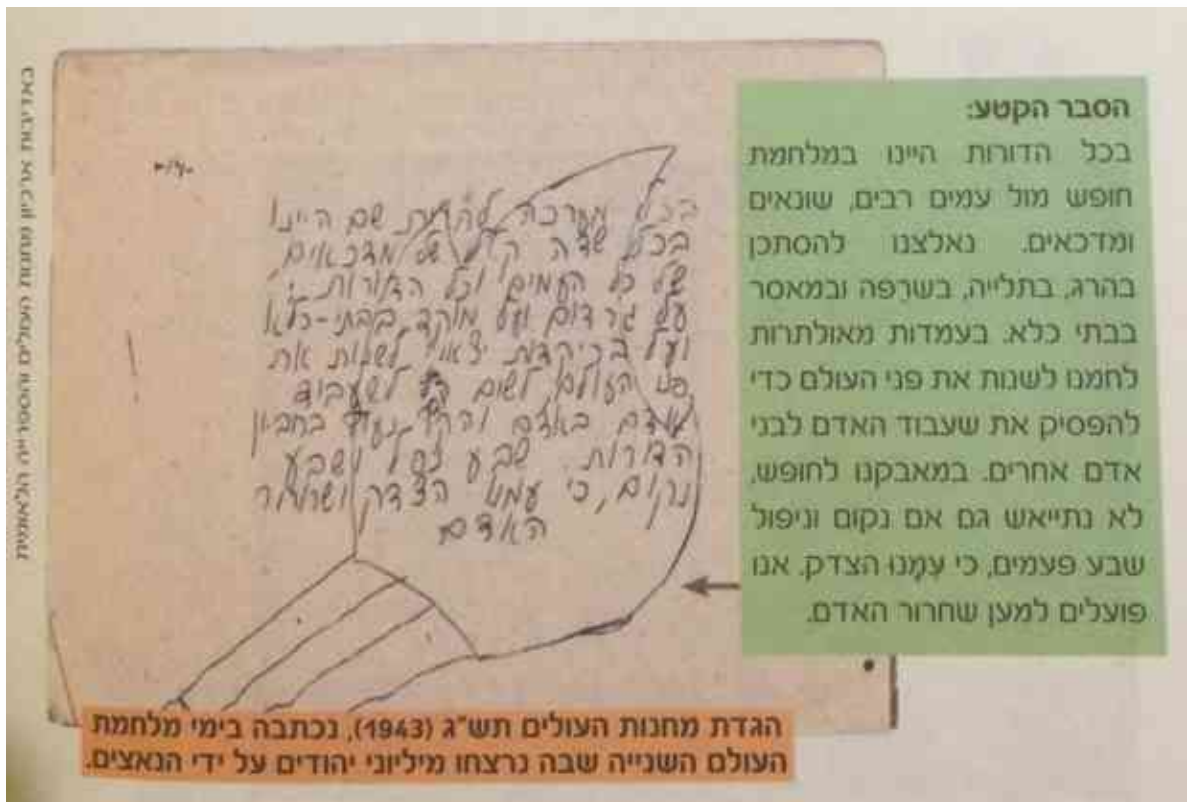 הסבר הקטע:
בכל הדורות היינו במלחמת
חופש מול עמים רבים, שונאים
ומדכאים. נאלצנו להסתכן
בהרג, בתלייה, בשרפה ובמאסר
בבתי כלא. בעמדות מאולתרות
לחמנו לשנות את פני העולם כדי
להפסיק את שעבוד האדם לבני
אדם אחרים. במאבקנו לחופש,
לא נתייאש גם אם נקום וניפול
שבע פעמים, כי עִמָנוּ הצדק. אנו
פועלים למען שחרור האדם.
בכל מערכה לחרות שם היינו
בכל שדה של מדכאים,
של כל העמים וכל הדורות
על גרדום ועל מוקד בבתי-כלא
ועל בריקדות יצאנו לשנות את
פני העולם לשים קץ לשעבוד
אדם באדם
הדורות. שבע נפל ושבע
נקום, כי עמנו הצדק ושחרור
האדם
הגדת מחנות העולים תש"ג (1943), נכתבה בימי מלחמת
העולם השנייה שבה נרצחו מיליוני יהודים על ידי הנאצים.